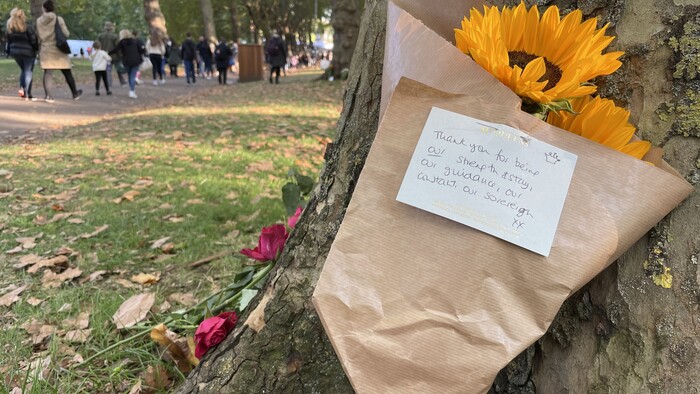 Thank you for being
our strength & stay,
our guidance, our
constant, our sovereign
xx